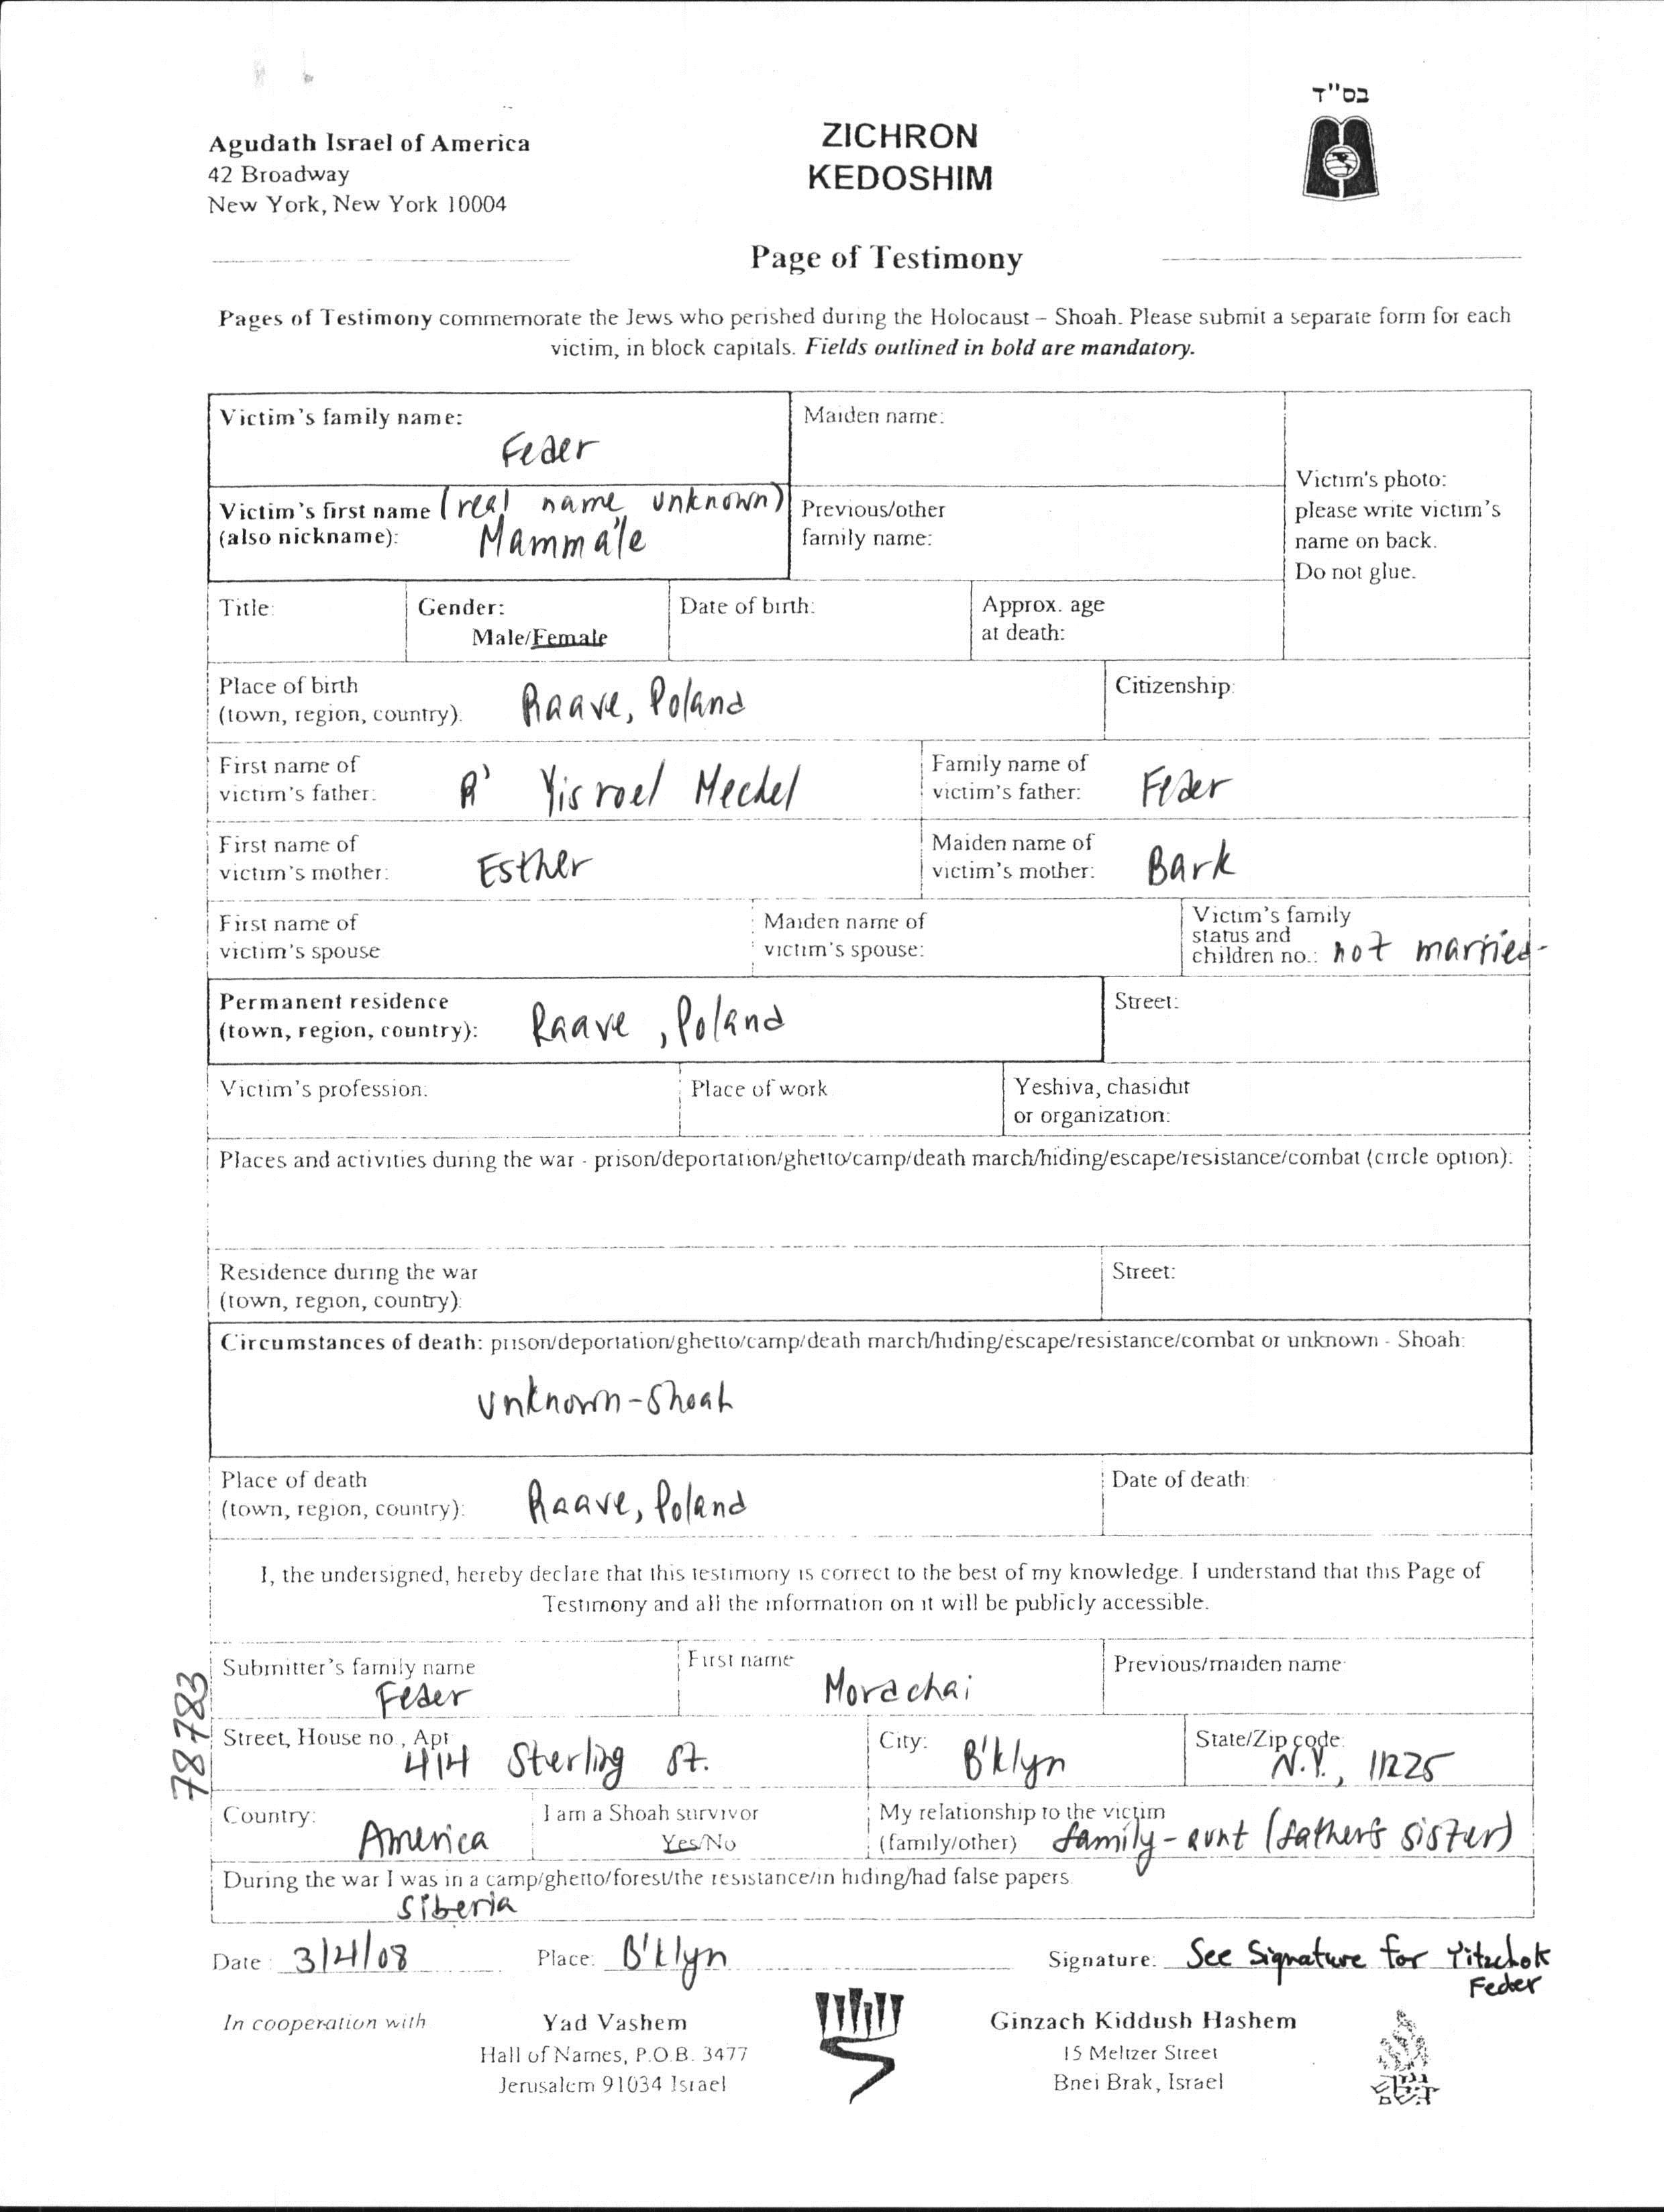 בס"ד
Agudath Israel of America
42 Broadway
New York, New York 10004
ZICHRON
KEDOSHIM
Page of Testimony
Pages of Testimony commemorate the Jews who perished during the Holocaust – Shoah. Please submit a separate form for each
victim, in block capitals. Fields outlined in bold are mandatory.
Victim's family name:
Feder
Maiden name:
Victim's photo:
please write victim's
name on back.
Do not glue.
Victim's first name (real name unknown)
(also nickname): Mamma'le
Previous/other
family name:
Title:
Gender:
Male/Female
Date of birth:
Approx. age
at death:
Place of birth
(town, region, country). Raave, Poland
Citizenship:
First name of
victim's father: R' Yisroel Mechel
Family name of
victim's father: Feder
First name of
victim's mother: Esther
Maiden name of
victim's mother: Bark
First name of
victim's spouse
Maiden name of
victim's spouse:
Victim's family
status and
children no.: not married-
Permanent residence
(town, region, country): Raave, Poland
Street:
Victim's profession:
Place of work
Yeshiva, chasidut
or organization:
Places and activities during the war - prison/deportation/ghetto/camp/death march/hiding/escape/resistance/combat (circle option):
Residence during the war
(town, region, country):
Street:
Circumstances of death: prison/deportation/ghetto/camp/death march/hiding/escape/resistance/combat or unknown - Shoah:
unknown-Shoah
Place of death
(town, region, country): Raave, Poland
Date of death:
I, the undersigned, hereby declare that this testimony is correct to the best of my knowledge. I understand that this Page of
Testimony and all the information on it will be publicly accessible.
78783
Submitter's family name
Feder
First name
Mordchai
Previous/maiden name:
Street, House no., Apt
414 Sterling St.
City:
B'klyn
State/Zip code:
N.Y., 11225
Country:
America
I am a Shoah survivor
Yes/No
My relationship to the victim
(family/other) family-aunt (father's sister)
During the war I was in a camp/ghetto/forest/the resistance/in hiding/had false papers.
Siberia
Date: 3/4/08 Place: B'klyn Signature: See Signature for Yitzchok
Feder
In cooperation with
Yad Vashem
Hall of Names, P.O.B. 3477
Jerusalem 91034 Israel
Ginzach Kiddush Hashem
15 Meltzer Street
Bnei Brak, Israel